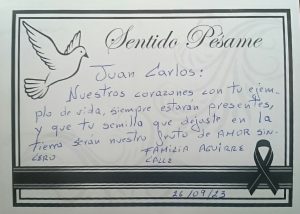 Sentido Pésame
Juan Carlos:
Nuestros corazones con tu ejem-
plo de vida, siempre estarán presentes,
y que tu semilla que dejaste en la
tierra seran nuestro fruto de AMOR SIN-
CERO
FAMILIA AGUIRRE
CALLE
26/09/23